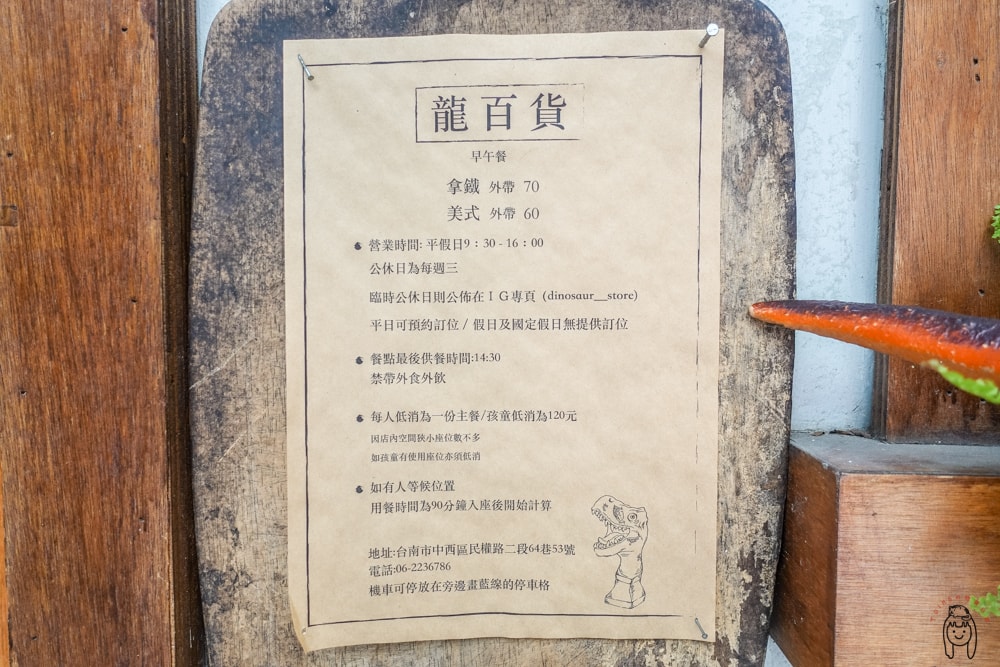 龍百貨
早午餐
拿鐵 外帶 70
美式 外帶 60
營業時間: 平假日9：30 - 16：00
公休日為每週三
臨時公休日則公佈在ＩＧ專頁 (dinosaur__store)
平日可預約訂位 / 假日及國定假日無提供訂位
餐點最後供餐時間:14:30
禁帶外食外飲
每人低消為一份主餐/孩童低消為120元
因店內空間狹小座位數不多
如孩童有使用座位亦須低消
如有人等候位置
用餐時間為90分鐘入座後開始計算
地址:台南市中西區民權路二段64巷53號
電話:06-2236786
機車可停放在旁邊畫藍線的停車格